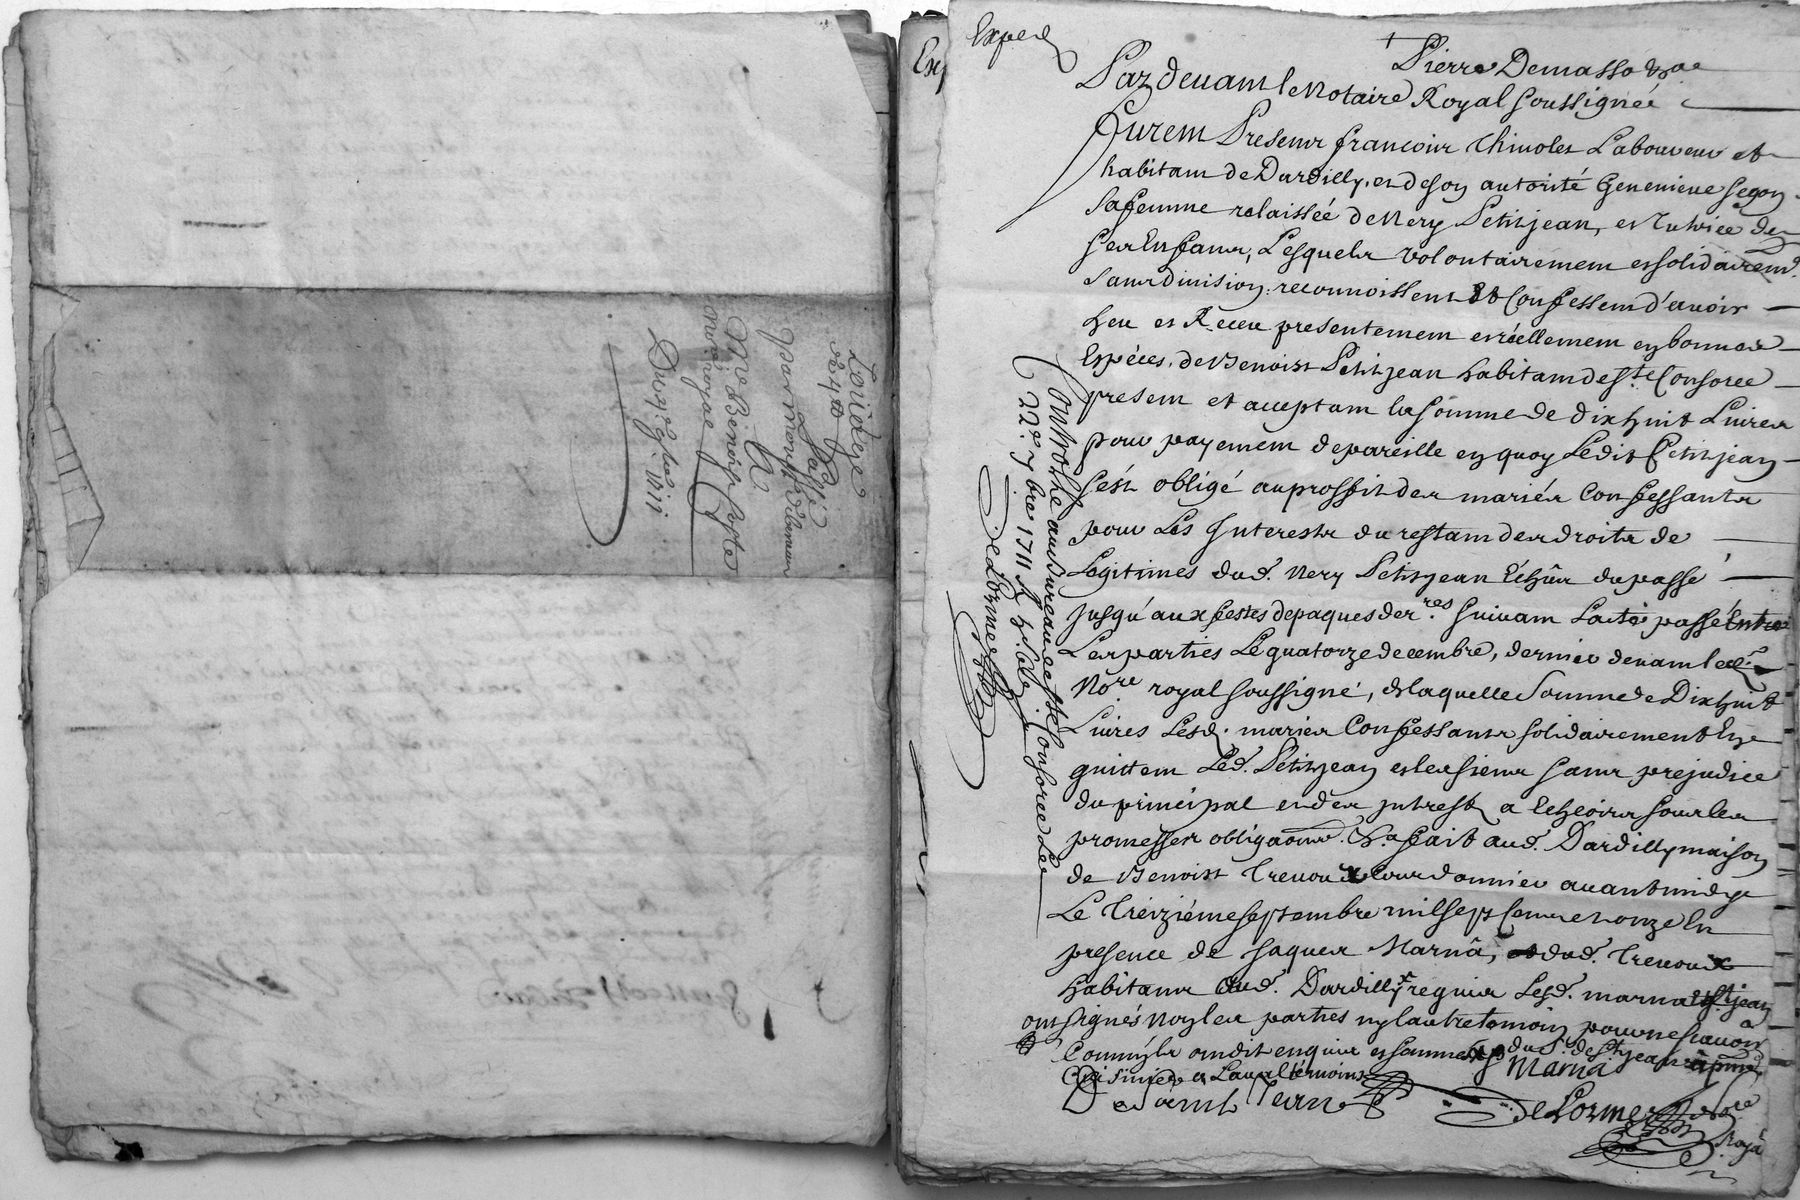 Louidge
passé
par Mons.r
A
M.re Benoist Coste
not. royal
Du 9.e 1711
Exped
Ex
Pierre Demasso &a
Pardevant le Notaire Royal soussigné
furent Presents françois Thivolet Laboureur et
habitant de Dardilly, et de son autorité Genevieve Segon
sa femme relaissée de Nery Petitjean, et Tutrice de
ses Enfants, Lesquels volontairement et solidairemt.
sans division reconnoissent Et Confessent d'avoir
heu et Receu presentement et réellement en bonnes
Espéces, de Benoist Petitjean habitant de Ste Consorce
present et acceptant la somme de dix huit Livres
pour payement de pareille en quoy Ledit Petitjean
s'est obligé au proffit des mariés Confessants
pour Les Interests du restant des droits de
Legitimes dud. Nery Petitjean Echûs du passé
jusqu'aux festes de paques der.res suivant L'acte passé Entre
Les parties Le quatorze decembre, dernier devant led.
No.re royal soussigné, de laquelle somme de Dix huit
Livres Lesd. mariés Confessants solidairement En
quittent Led. Petitjean et les siens sans prejudice
du principal et des intrest a Echeoirs sous les
promesses obligaōns. &a fait aud. Dardilly maison
de Benoist Trevoux Courdonnier avant midy
Le Treiziéme septembre mil sept Cents et onze En
presence de Jaques Marnâ, dud. Trevoux
habitants aud. Dardilly requis Lesd. marna
ont signés Non les parties ny l'autre temoin pour ne scavoir
Comm'yls ont dit enquis et sommés
Marna
DeLorme No.re
Royal
Controllé au bureau de Ste Consorce Le
22.e 7bre 1711 R.
DeLorme